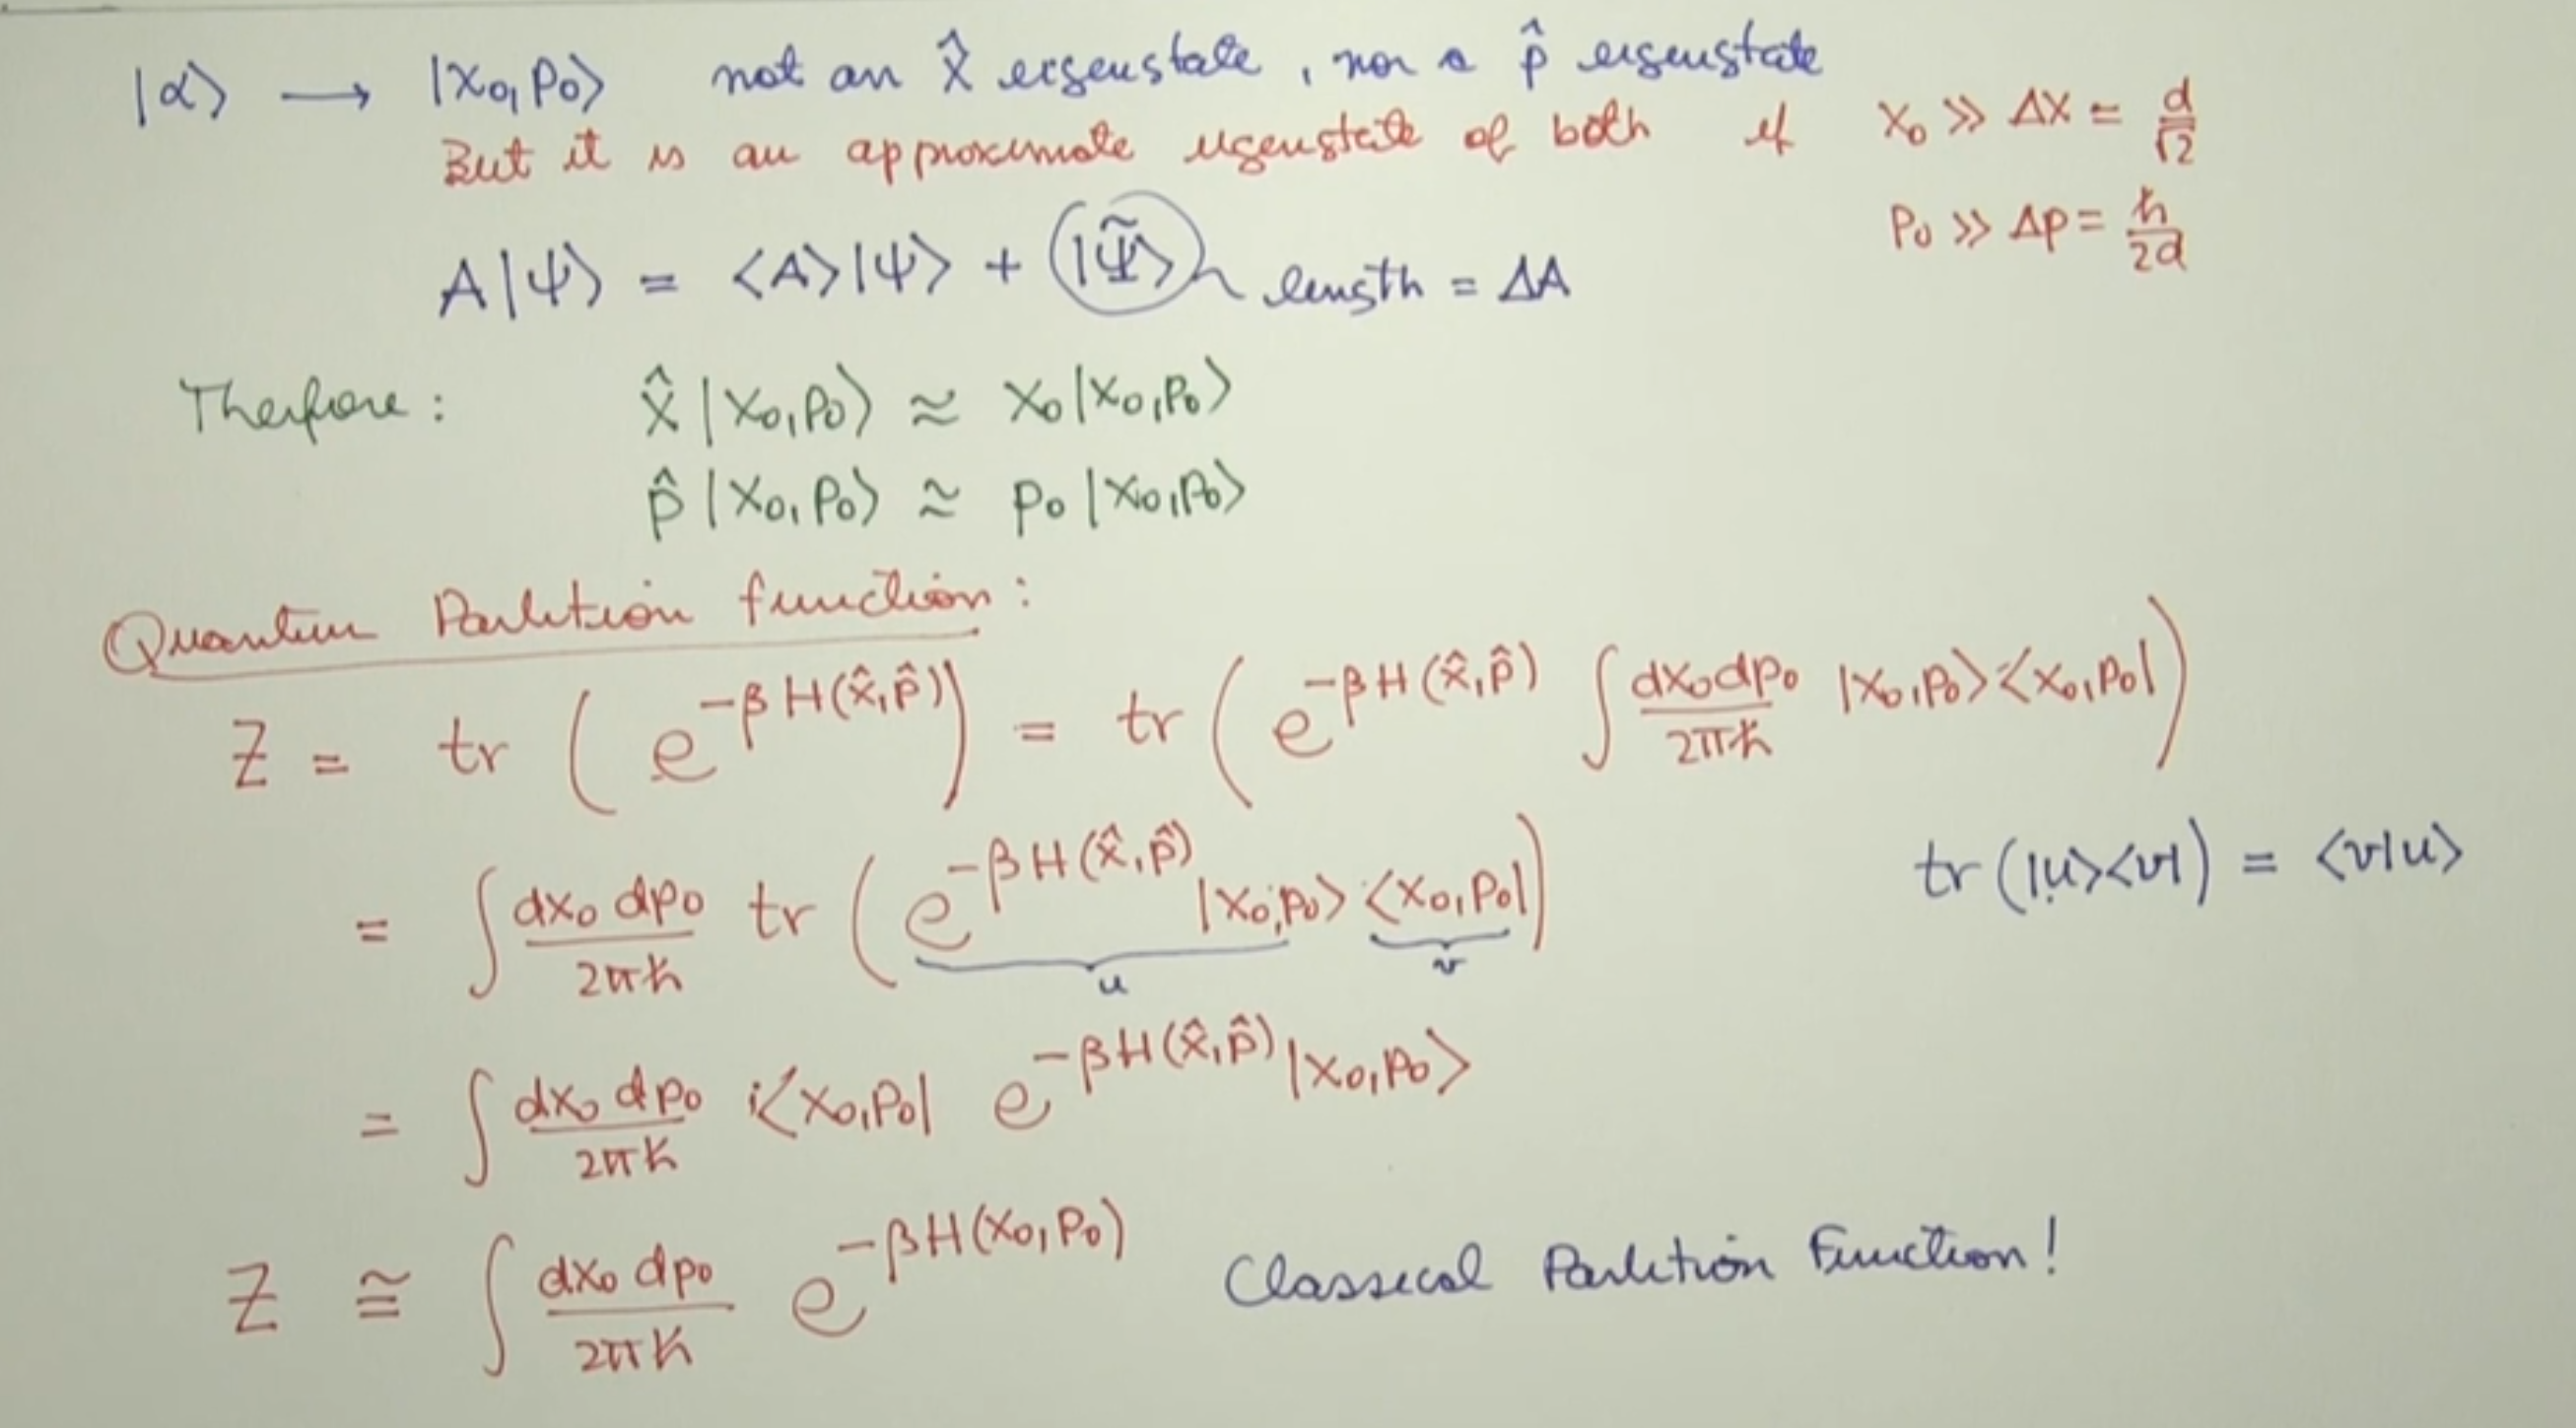 |α⟩ → |x₀,p₀⟩ not an x̂ eigenstate, nor a p̂ eigenstate
But it is an approximate eigenstate of both if x₀ ≫ Δx = d/√2
p₀ ≫ Δp = ħ/2d
A|ψ⟩ = ⟨A⟩|ψ⟩ + |ψ̃⟩ length = ΔA
Therefore: x̂|x₀,p₀⟩ ≈ x₀|x₀,p₀⟩
p̂|x₀,p₀⟩ ≈ p₀|x₀,p₀⟩
Quantum Partition function:
Z = tr(e^{-βH(x̂,p̂)}) = tr(e^{-βH(x̂,p̂)} ∫ dx₀dp₀/2πħ |x₀,p₀⟩⟨x₀,p₀|)
= ∫ dx₀ dp₀/2πħ tr(e^{-βH(x̂,p̂)} |x₀,p₀⟩ ⟨x₀,p₀|) tr(|u⟩⟨v|) = ⟨v|u⟩
u v
= ∫ dx₀ dp₀/2πħ ⟨x₀,p₀| e^{-βH(x̂,p̂)} |x₀,p₀⟩
Z ≅ ∫ dx₀ dp₀/2πħ e^{-βH(x₀,p₀)} Classical Partition Function!